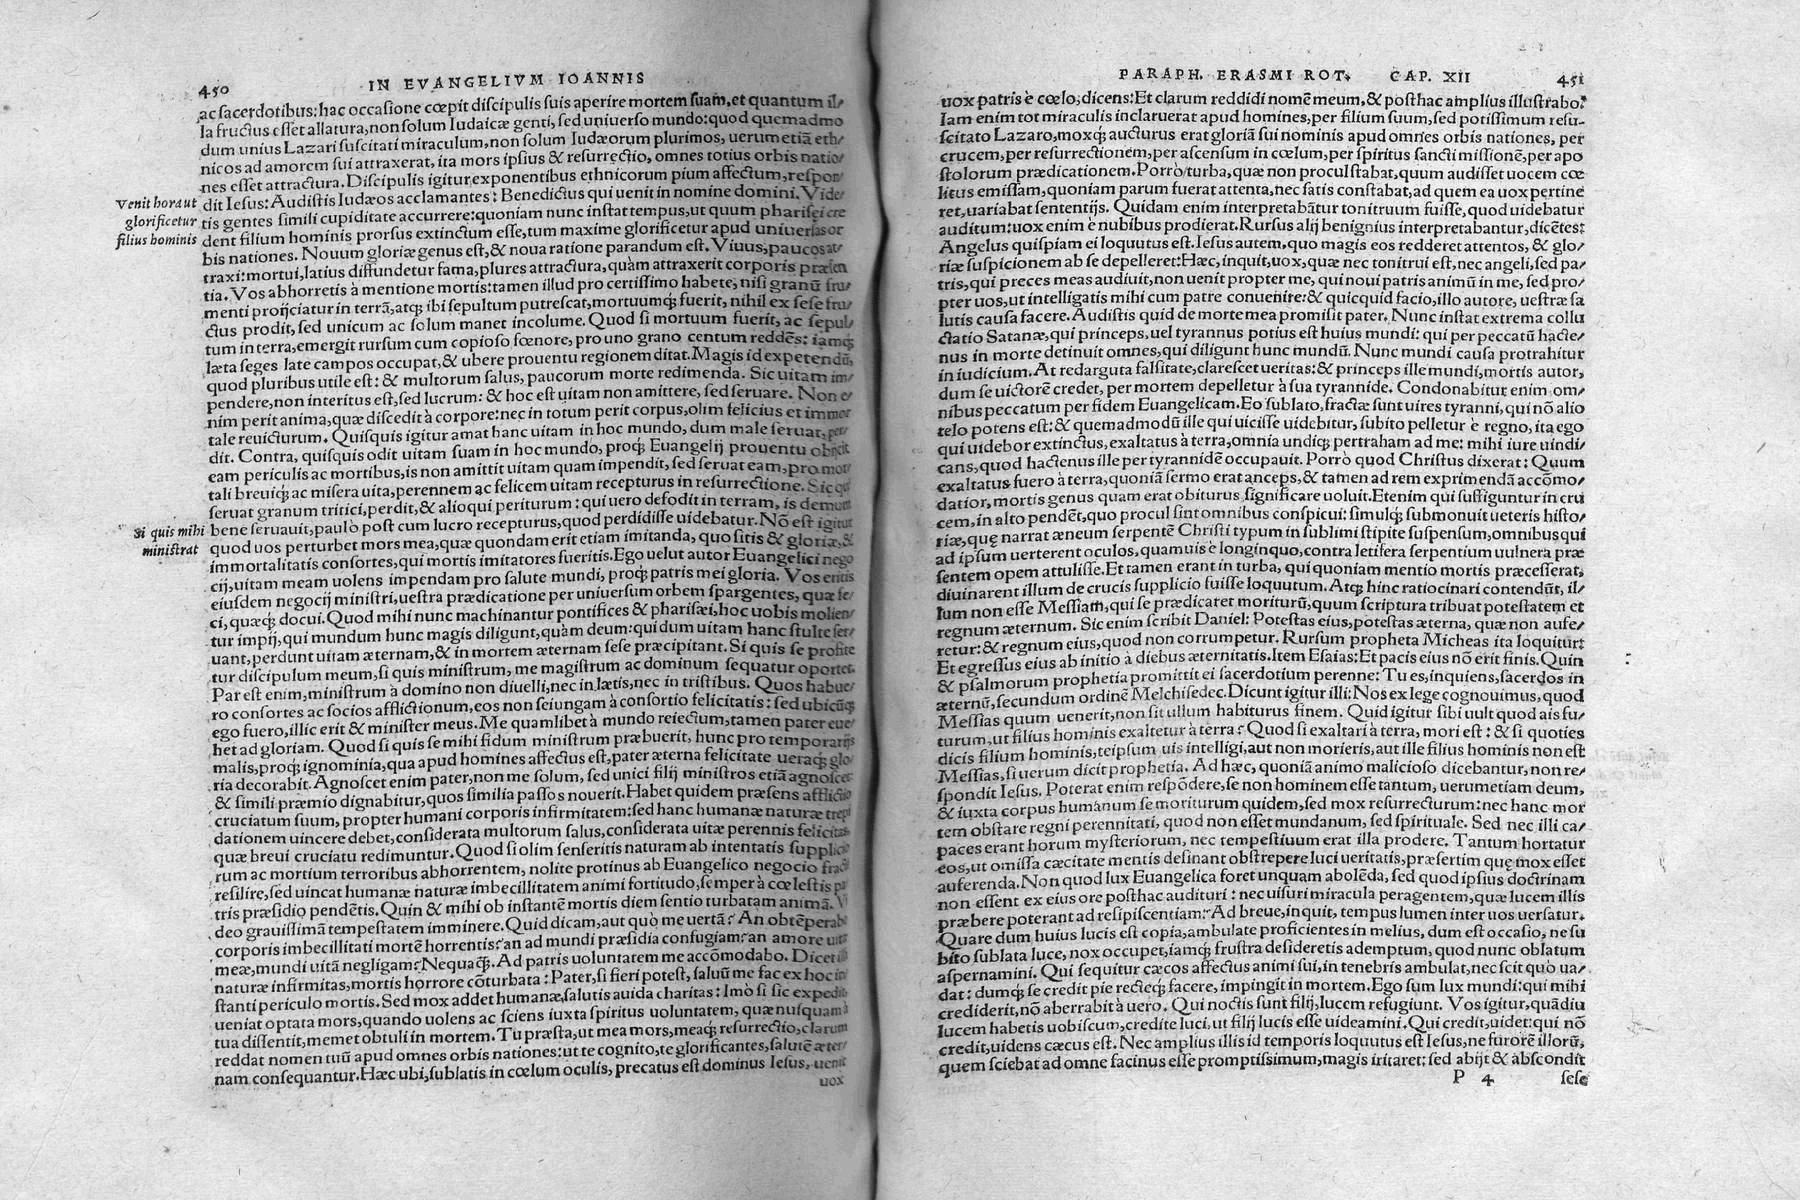 450 IN EVANGELIVM IOANNIS
ac sacerdotibus: hac occasione cœpit discipulis suis aperire mortem suam, et quantum il-
la fructus esset allatura, non solum Iudaicæ genti, sed uniuerso mundo: quod quemadmo
dum unius Lazari suscitati miraculum, non solum Iudæorum plurimos, uerum etiā eth-
nicos ad amorem sui attraxerat, ita mors ipsius & resurrectio, omnes totius orbis natio-
nes esset attractura. Discipulis igitur exponentibus ethnicorum pium affectum, respon-
Venit hora ut
glorificetur
filius hominis
dit Iesus: Audistis Iudæos acclamantes: Benedictus qui uenit in nomine domini. Vide-
tis gentes simili cupiditate accurrere: quoniam nunc instat tempus, ut quum pharisæi cre
dent filium hominis prorsus extinctum esse, tum maxime glorificetur apud uniuersas or
bis nationes. Nouum gloriæ genus est, & noua ratione parandum est. Viuus, paucos at-
traxi: mortui, latius diffundetur fama, plures attractura, quàm attraxerit corporis præsen
tia. Vos abhorretis à mentione mortis: tamen illud pro certissimo habete, nisi granū fru-
menti proijciatur in terrā, atq; ibi sepultum putrescat, mortuumq; fuerit, nihil ex sese fru-
ctus prodit, sed unicum ac solum manet incolume. Quod si mortuum fuerit, ac sepul-
tum in terra, emergit rursum cum copioso fœnore, pro uno grano centum reddēs: iamq;
læta seges late campos occupat, & ubere prouentu regionem ditat. Magis id expetendū,
quod pluribus utile est: & multorum salus, paucorum morte redimenda. Sic uitam im-
pendere, non interitus est, sed lucrum: & hoc est uitam non amittere, sed seruare. Non e-
nim perit anima, quæ discedit à corpore: nec in totum perit corpus, olim felicius et immor
tale reuicturum. Quisquis igitur amat hanc uitam in hoc mundo, dum male seruat, per-
dit. Contra, quisquis odit uitam suam in hoc mundo, proq; Euangelij prouentu obijcit
eam periculis ac mortibus, is non amittit uitam quam impendit, sed seruat eam, pro mor-
tali breuiq; ac misera uita, perennem ac felicem uitam recepturus in resurrectione. Sic qui
seruat granum tritici, perdit, & alioqui periturum: qui uero defodit in terram, is demum
Si quis mihi
ministrat
bene seruauit, paulò post cum lucro recepturus, quod perdidisse uidebatur. Nō est igitur
quod uos perturbet mors mea, quæ quondam erit etiam imitanda, quo sitis & gloriæ, &
immortalitatis consortes, qui mortis imitatores fueritis. Ego uelut autor Euangelici nego
cij, uitam meam uolens impendam pro salute mundi, proq; patris mei gloria. Vos eritis
eiusdem negocij ministri, uestra prædicatione per uniuersum orbem spargentes, quæ fe-
ci, quæq; docui. Quod mihi nunc machinantur pontifices & pharisæi, hoc uobis molien-
tur impij, qui mundum hunc magis diligunt, quàm deum: qui dum uitam hanc stulte ser-
uant, perdunt uitam æternam, & in mortem æternam sese præcipitant. Si quis se profite
tur discipulum meum, si quis ministrum, me magistrum ac dominum sequatur oportet.
Par est enim, ministrum à domino non diuelli, nec in lætis, nec in tristibus. Quos habue-
ro consortes ac socios afflictionum, eos non seiungam à consortio felicitatis: sed ubicūq;
ego fuero, illic erit & minister meus. Me quamlibet à mundo reiectum, tamen pater eue-
het ad gloriam. Quod si quis se mihi fidum ministrum præbuerit, hunc pro temporarijs
malis, proq; ignominia, qua apud homines affectus est, pater æterna felicitate ueraq; glo-
ria decorabit. Agnoscet enim pater, non me solum, sed unici filij ministros etiā agnoscet
& simili præmio dignabitur, quos similia passos nouerit. Habet quidem præsens afflictio
cruciatum suum, propter humani corporis infirmitatem: sed hanc humanæ naturæ trepi
dationem uincere debet, considerata multorum salus, considerata uitæ perennis felicitas
quæ breui cruciatu redimuntur. Quod si olim senseritis naturam ab intentatis supplicio
rum ac mortium terroribus abhorrentem, nolite protinus ab Euangelico negocio fracti
resilire, sed uincat humanæ naturæ imbecillitatem animi fortitudo, semper à cœlestis pa
tris præsidio pendētis. Quin & mihi ob instantē mortis diem sentio turbatam animā.
deo grauissimā tempestatem imminere. Quid dicam, aut quò me uertā? An obtēperabo
corporis imbecillitati mortē horrentis? an ad mundi præsidia confugiam? an amore uitæ
meæ, mundi uitā negligam? Nequaq̄. Ad patris uoluntatem me accōmodabo. Dicet
naturæ infirmitas, mortis horrore cōturbata: Pater, si fieri potest, saluū me fac ex hoc in
stanti periculo mortis. Sed mox addet humanæ salutis auida charitas: Imò si sic expedit
ueniat optata mors, quando uolens ac sciens iuxta spiritus uoluntatem, quæ nusquam à
tua dissentit, memet obtuli in mortem. Tu præsta, ut mea mors, meaq; resurrectio, clarum
reddat nomen tuū apud omnes orbis nationes: ut te cognito, te glorificantes, salutē æter-
nam consequantur. Hæc ubi, sublatis in cœlum oculis, precatus est dominus Iesus, uenit
uox
PARAPH. ERASMI ROT. CAP. XII 451
uox patris è cœlo, dicens: Et clarum reddidi nomē meum, & posthac amplius illustrabo.
Iam enim tot miraculis inclaruerat apud homines, per filium suum, sed potissimum resu-
scitato Lazaro, moxq; aucturus erat gloriā sui nominis apud omnes orbis nationes, per
crucem, per resurrectionem, per ascensum in cœlum, per spiritus sancti missionē, per apo
stolorum prædicationem. Porrò turba, quæ non procul stabat, quum audisset uocem cœ
litus emissam, quoniam parum fuerat attenta, nec satis constabat, ad quem ea uox pertine
ret, uariabat sententijs. Quidam enim interpretabātur tonitruum fuisse, quod uidebatur
auditum: uox enim è nubibus prodierat. Rursus alij benignius interpretabantur, dicētes:
Angelus quispiam ei loquutus est. Iesus autem, quo magis eos redderet attentos, & glo-
riæ suspicionem ab se depelleret: Hæc, inquit, uox, quæ nec tonitrui est, nec angeli, sed pa-
tris, qui preces meas audiuit, non uenit propter me, qui noui patris animū in me, sed pro-
pter uos, ut intelligatis mihi cum patre conuenire: & quicquid facio, illo autore, uestræ sa
lutis causa facere. Audistis quid de morte mea promisit pater. Nunc instat extrema collu
ctatio Satanæ, qui princeps, uel tyrannus potius est huius mundi: qui per peccatū hacte-
nus in morte detinuit omnes, qui diligunt hunc mundū. Nunc mundi causa protrahitur
in iudicium. At redarguta falsitate, clarescet ueritas: & princeps ille mundi, mortis autor,
dum se uictorē credet, per mortem depelletur à sua tyrannide. Condonabitur enim om-
nibus peccatum per fidem Euangelicam. Eo sublato, fractæ sunt uires tyranni, qui nō alio
telo potens est: & quemadmodū ille qui uicisse uidebitur, subito pelletur è regno, ita ego
qui uidebor extinctus, exaltatus à terra, omnia undiq; pertraham ad me: mihi iure uindi-
cans, quod hactenus ille per tyrannidē occupauit. Porrò quod Christus dixerat: Quum
exaltatus fuero à terra, quoniā sermo erat anceps, & tamen ad rem exprimendā accōmo-
datior, mortis genus quam erat obiturus significare uoluit. Etenim qui suffiguntur in cru
cem, in alto pendēt, quo procul sint omnibus conspicui: simulq; submonuit ueteris histo-
riæ, quę narrat æneum serpentē Christi typum in sublimi stipite suspensum, omnibus qui
ad ipsum uerterent oculos, quamuis è longinquo, contra letifera serpentium uulnera præ
sentem opem attulisse. Et tamen erant in turba, qui quoniam mentio mortis præcesserat,
diuinarent illum de crucis supplicio fuisse loquutum. Atq; hinc ratiocinari contendūt, il-
lum non esse Messiam, qui se prædicaret moriturū, quum scriptura tribuat potestatem et
regnum æternum. Sic enim scribit Daniel: Potestas eius, potestas æterna, quæ non aufe-
retur: & regnum eius, quod non corrumpetur. Rursum propheta Micheas ita loquitur:
Et egressus eius ab initio à diebus æternitatis. Item Esaias: Et pacis eius nō erit finis. Quin
& psalmorum prophetia promittit ei sacerdotium perenne: Tu es, inquiens, sacerdos in
æternū, secundum ordinē Melchisedec. Dicunt igitur illi: Nos ex lege cognouimus, quod
Messias quum uenerit, non sit ullum habiturus finem. Quid igitur sibi uult quod ais fu-
turum, ut filius hominis exaltetur à terra? Quod si exaltari à terra, mori est: & si quoties
dicis filium hominis, teipsum uis intelligi, aut non morieris, aut ille filius hominis non est
Messias, si uerum dicit prophetia. Ad hæc, quoniā animo malicioso dicebantur, non re-
spondit Iesus. Poterat enim respōdere, se non hominem esse tantum, uerumetiam deum,
& iuxta corpus humanum se moriturum quidem, sed mox resurrecturum: nec hanc mor
tem obstare regni perennitati, quod non esset mundanum, sed spirituale. Sed nec illi ca-
paces erant horum mysteriorum, nec tempestiuum erat illa prodere. Tantum hortatur
eos, ut omissa cæcitate mentis desinant obstrepere luci ueritatis, præsertim quę mox esset
auferenda. Non quod lux Euangelica foret unquam abolēda, sed quod ipsius doctrinam
non essent ex eius ore posthac audituri: nec uisuri miracula peragentem, quæ lucem illis
præbere poterant ad resipiscentiam. Ad breue, inquit, tempus lumen inter uos uersatur.
Quare dum huius lucis est copia, ambulate proficientes in melius, dum est occasio, ne su
bito sublata luce, nox occupet, iamq; frustra desideretis ademptum, quod nunc oblatum
aspernamini. Qui sequitur cæcos affectus animi sui, in tenebris ambulat, nec scit quò ua-
dat: dumq; se credit pie recteq; facere, impingit in mortem. Ego sum lux mundi: qui mihi
crediderit, nō aberrabit à uero. Qui noctis sunt filij, lucem refugiunt. Vos igitur, quādiu
lucem habetis uobiscum, credite luci, ut filij lucis esse uideamini. Qui credit, uidet: qui nō
credit, uidens cæcus est. Nec amplius illis id temporis loquutus est Iesus, ne furorē illorū,
quem sciebat ad omne facinus esse promptissimum, magis irritaret: sed abijt & abscondit
P 4 sese